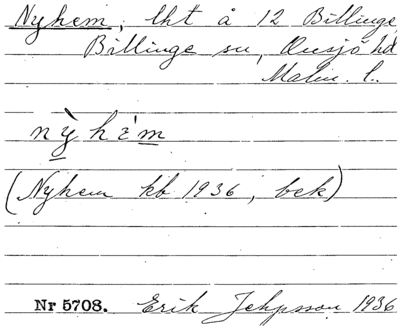 Nyhem, lht å 12 Billinge,
Billinge sn, Onsjö hd
Malm. l.
nỳhèm
(Nyhem kb 1936, bek)
Nr 5708. Erik Jeppsson 1936